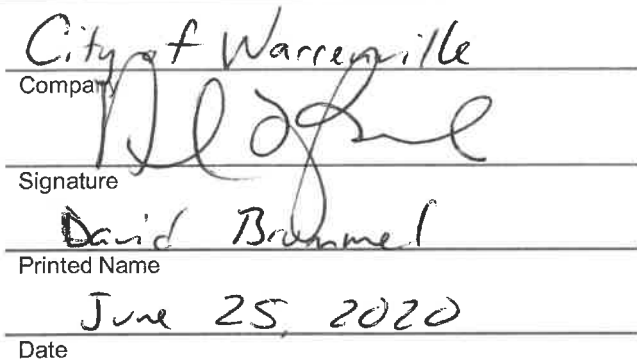 City of Warrenville
Company
Signature
David Brummel
Printed Name
June 25, 2020
Date